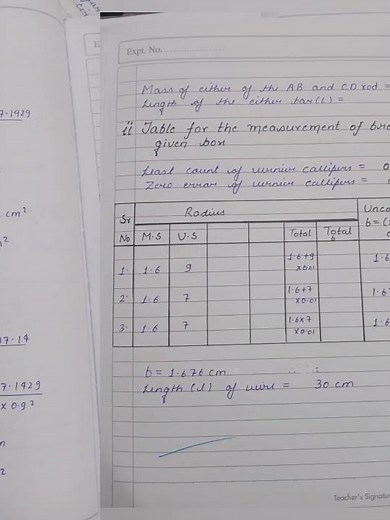 7.1929
cm²
17.14
7.1929
x 0.9²
Expt. No.
Mass of either of the AB and CD rod =
Length of the either bar (L) =
ii Table for the measurement of
given box
Least count of vernier callipers = 0
Zero error of vernier callipers =
Sr No Radius b=(
M.S V.S Total Total
1. 1.6 9 1.6+9 x0.01 1.6
2. 1.6 7 1.6+7 x0.01 1.6
3. 1.6 7 1.6x7 x0.01 1.6
b = 1.676 cm
Length (l) of wire = 30 cm
Teacher's Signatur